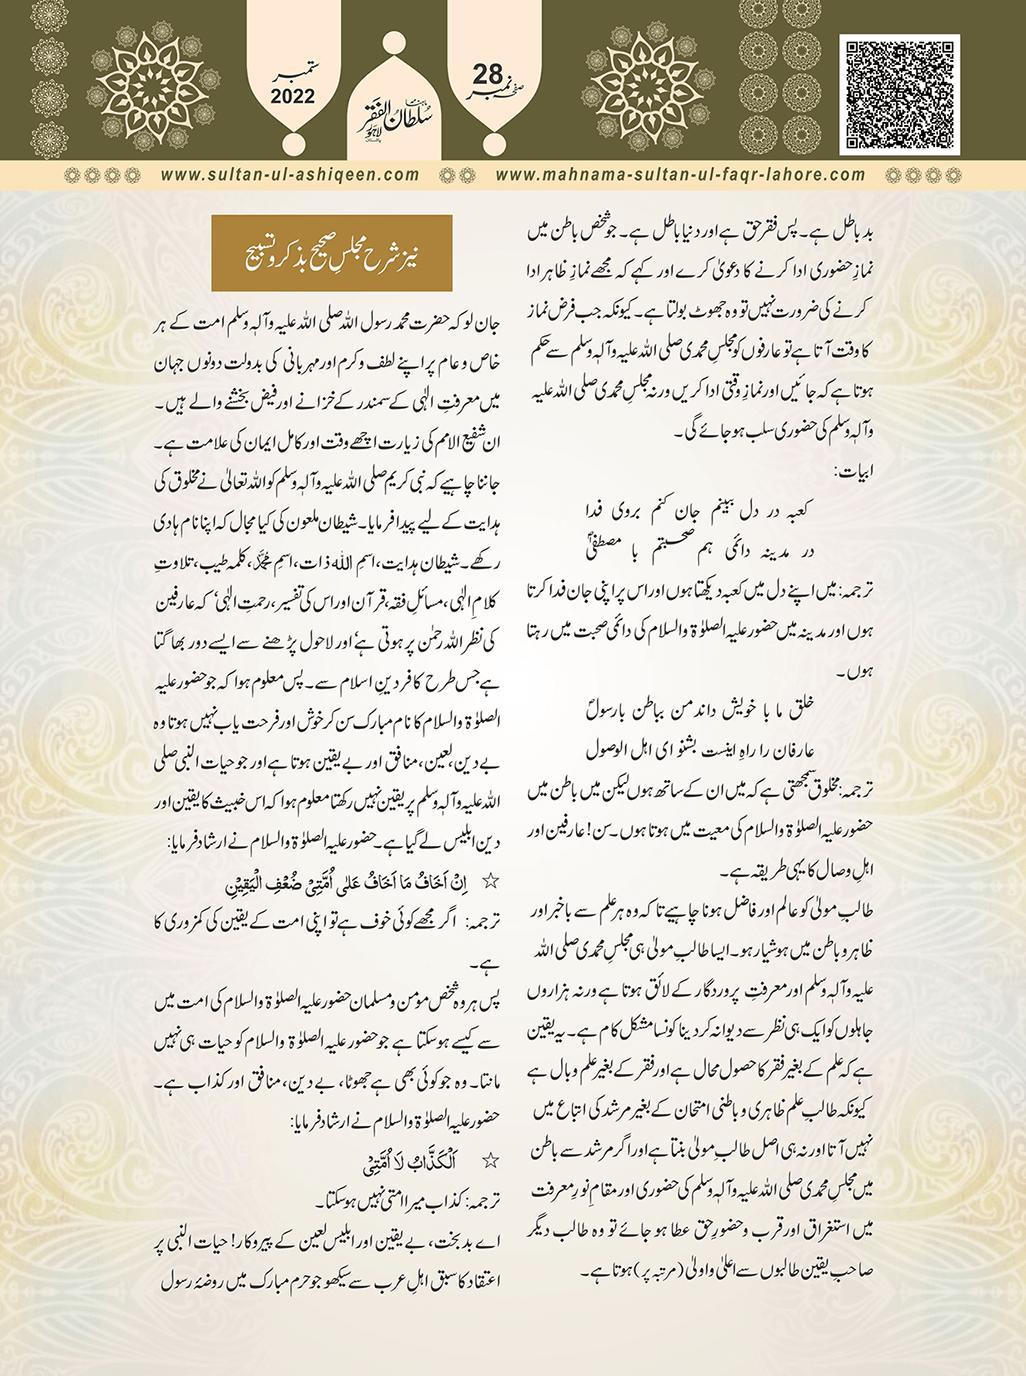 ستمبر
2022
ماہنامہ
سُلطان الفقر
لاہور
پاکستان
28
صفحہ نمبر
www.sultan-ul-ashiqeen.com
www.mahnama-sultan-ul-faqr-lahore.com
بد باطل ہے۔ پس فقر حق ہے اور دنیا باطل ہے۔ جو شخص باطن میں
نمازِ حضوری ادا کرنے کا دعویٰ کرے اور کہے کہ مجھے نمازِ ظاہر ادا
کرنے کی ضرورت نہیں تو وہ جھوٹ بولتا ہے۔ کیونکہ جب فرض نماز
کا وقت آتا ہے تو عارفوں کو مجلسِ محمدی صلی اللہ علیہ وآلہٖ وسلم سے حکم
ہوتا ہے کہ جائیں اور نمازِ وقتی ادا کریں ورنہ مجلسِ محمدی صلی اللہ علیہ
وآلہٖ وسلم کی حضوری سلب ہو جائے گی۔
ابیات:
کعبہ در دل ببینم جان کنم بروی فدا
در مدینہ دائمی ہم صحبتم با مصطفیؐ
ترجمہ: میں اپنے دل میں کعبہ دیکھتا ہوں اور اس پر اپنی جان فدا کرتا
ہوں اور مدینہ میں حضور علیہ الصلوٰۃ والسلام کی دائمی صحبت میں رہتا
ہوں۔
خلق ما با خویش داند من بباطن بارسولؐ
عارفان را راہِ اینست بشنو ای اہل الوصول
ترجمہ: مخلوق سمجھتی ہے کہ میں ان کے ساتھ ہوں لیکن میں باطن میں
حضور علیہ الصلوٰۃ والسلام کی معیت میں ہوتا ہوں۔ سن! عارفین اور
اہلِ وصال کا یہی طریقہ ہے۔
طالبِ مولیٰ کو عالم اور فاضل ہونا چاہیے تاکہ وہ ہر علم سے باخبر اور
ظاہر و باطن میں ہوشیار ہو۔ ایسا طالبِ مولیٰ ہی مجلسِ محمدی صلی اللہ
علیہ وآلہٖ وسلم اور معرفتِ پروردگار کے لائق ہوتا ہے ورنہ ہزاروں
جاہلوں کو ایک ہی نظر سے دیوانہ کر دینا کونسا مشکل کام ہے۔ یہ یقین
ہے کہ علم کے بغیر فقر کا حصول محال ہے اور فقر کے بغیر علم وبال ہے
کیونکہ طالب علمِ ظاہری و باطنی امتحان کے بغیر مرشد کی اتباع میں
نہیں آتا اور نہ ہی اصل طالبِ مولیٰ بنتا ہے اور اگر مرشد سے باطن
میں مجلسِ محمدی صلی اللہ علیہ وآلہٖ وسلم کی حضوری اور مقامِ نورِ معرفت
میں استغراق اور قرب و حضورِ حق عطا ہو جائے تو وہ طالب دیگر
صاحبِ یقین طالبوں سے اعلیٰ و اولیٰ (مرتبہ پر) ہوتا ہے۔
نیز شرح مجلسِ صحیح بذکر و تسبیح
جان لو کہ حضرت محمد رسول اللہ صلی اللہ علیہ وآلہٖ وسلم امت کے ہر
خاص و عام پر اپنے لطف و کرم اور مہربانی کی بدولت دونوں جہان
میں معرفتِ الٰہی کے سمندر کے خزانے اور فیض بخشنے والے ہیں۔
ان شفیع الامم کی زیارت اچھے وقت اور کامل ایمان کی علامت ہے۔
جاننا چاہیے کہ نبی کریم صلی اللہ علیہ وآلہٖ وسلم کو اللہ تعالیٰ نے مخلوق کی
ہدایت کے لیے پیدا فرمایا۔ شیطان ملعون کی کیا مجال کہ اپنا نام ہادی
رکھے۔ شیطان ہدایت، اسمِ اللہ ذات، اسمِ محمدؐ، کلمہ طیب، تلاوتِ
کلامِ الٰہی، مسائلِ فقہ، قرآن اور اس کی تفسیر، رحمتِ الٰہی‘ کہ عارفین
کی نظر اللہ رحمٰن پر ہوتی ہے‘ اور لاحول پڑھنے سے ایسے دور بھاگتا
ہے جس طرح کافر دینِ اسلام سے۔ پس معلوم ہوا کہ جو حضور علیہ
الصلوٰۃ والسلام کا نام مبارک سن کر خوش اور فرحت یاب نہیں ہوتا وہ
بے دین، لعین، منافق اور بے یقین ہوتا ہے اور جو حیات النبی صلی
اللہ علیہ وآلہٖ وسلم پر یقین نہیں رکھتا معلوم ہوا کہ اس خبیث کا یقین اور
دین ابلیس لے گیا ہے۔ حضور علیہ الصلوٰۃ والسلام نے ارشاد فرمایا:
☆ اِنْ اَخَافُ مَا اَخَافُ عَلٰی اُمَّتِیْ ضُعْفِ الْیَقِیْنِ
ترجمہ: اگر مجھے کوئی خوف ہے تو اپنی امت کے یقین کی کمزوری کا
ہے۔
پس ہر وہ شخص مومن و مسلمان حضور علیہ الصلوٰۃ والسلام کی امت میں
سے کیسے ہو سکتا ہے جو حضور علیہ الصلوٰۃ والسلام کو حیات ہی نہیں
مانتا۔ وہ جو کوئی بھی ہے جھوٹا، بے دین، منافق اور کذاب ہے۔
حضور علیہ الصلوٰۃ والسلام نے ارشاد فرمایا:
☆ اَلْکَذَّابُ لَا اُمَّتِیْ
ترجمہ: کذاب میرا امتی نہیں ہو سکتا۔
اے بدبخت، بے یقین اور ابلیس لعین کے پیروکار! حیات النبی پر
اعتقاد کا سبق اہلِ عرب سے سیکھو جو حرم مبارک میں روضۂ رسول